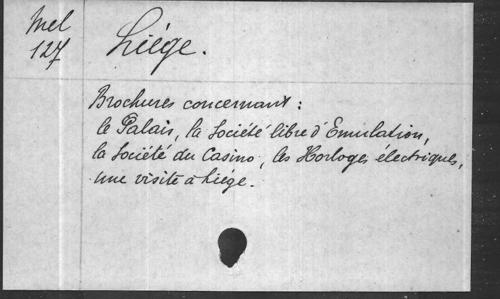 Mel
127
Liége.
Brochures concernant :
le Palais, la Société libre d'Emulation,
la Société du Casino, les Horloges électriques,
une visite à Liége.